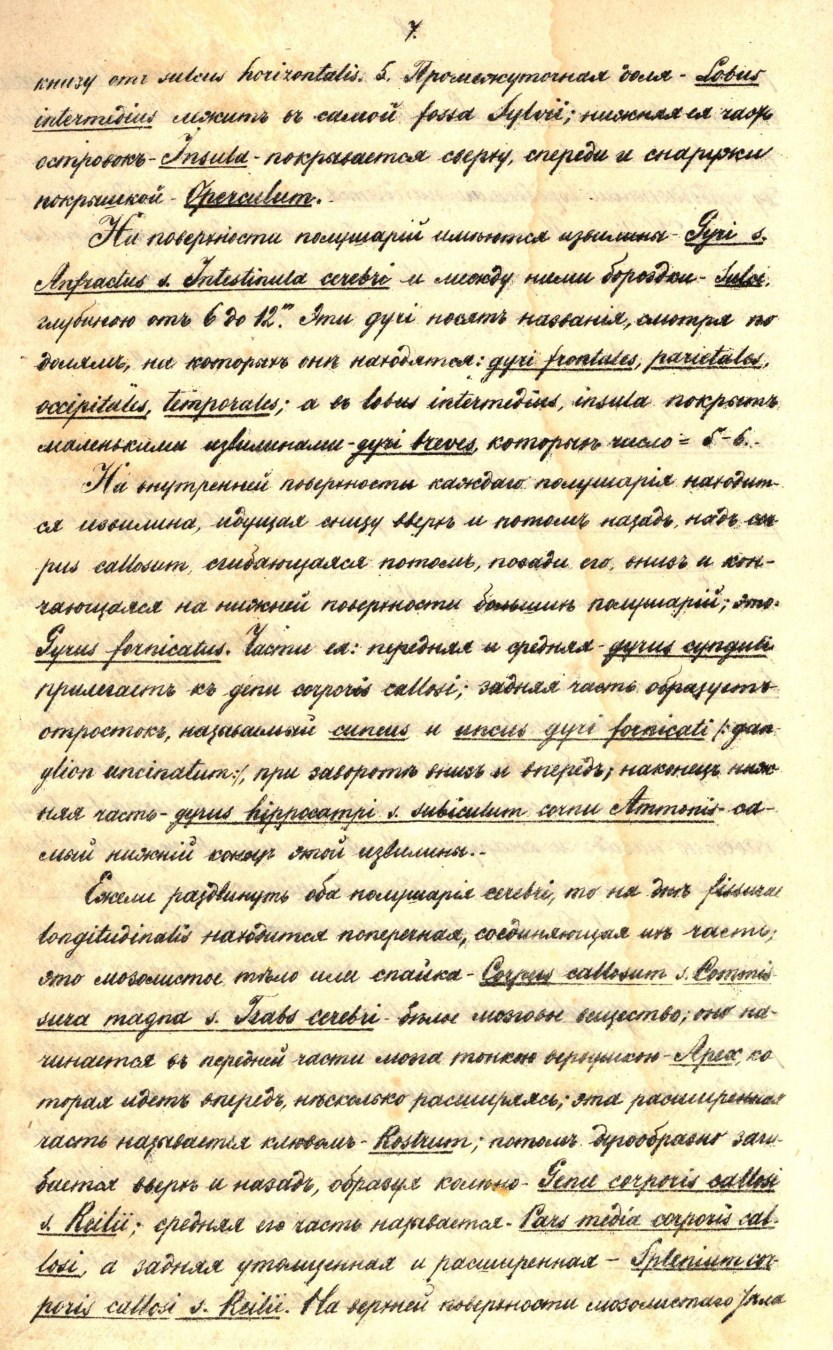 7.
книзу отъ sulcus horizontalis. 5. Промежуточная доля - Lobus
intermedius лежитъ въ самой fossa Sylvii; нижняя ея часть
островокъ - Insula - покрывается сверху, спереди и снаружи
покрышкой - Operculum.
На поверхности полушарій имѣются извилины - Gyri s.
Anfractus s. Intestinula cerebri и между ними бороздки - Sulci,
глубиною отъ 6 до 12''' Эти gyri носятъ названія, смотря по
долямъ, на которыхъ онѣ находятся: gyri frontales, parietales,
occipitales, temporales; а въ lobus intermedius, insula покрытъ
маленькими извилинами - gyri breves, которыхъ число = 5-6.
На внутренней поверхности каждаго полушарія находит-
ся извилина, идущая снизу вверхъ и потомъ назадъ, надъ cor-
pus callosum, сгибающаяся потомъ, позади его, внизъ и кон-
чающаяся на нижней поверхности большихъ полушарій; это-
Gyrus fornicatus. Части ея: передняя и средняя - gyrus cynguli
прилегаетъ къ genu corporis callosi; задняя часть образуетъ
отростокъ, называемый cuneus и uncus gyri fornicati /:gan-
glion uncinatum:/, при заворотѣ внизъ и впередъ; наконецъ ниж-
няя часть - gyrus hippocampi s. subiculum cornu Ammonis - са-
мый нижній конецъ этой извилины.
Ежели раздвинуть оба полушарія cerebri, то на днѣ fissurae
longitudinalis находится поперечная, соединяющая ихъ часть;
это мозолистое тѣло или спайка - Corpus callosum s. Commis-
sura magna s. Trabs cerebri - бѣлое мозговое вещество; оно на-
чинается въ передней части мозга тонкою верхушкою - Apex, ко
торая идетъ впередъ, нѣсколько расширяясь; эта расширенная
часть называется клювомъ - Rostrum; потомъ дугообразно заги-
бается вверхъ и назадъ, образуя колѣно - Genu corporis callosi
s. Reilii; средняя его часть называется - Pars media corporis cal-
losi, а задняя утолщенная и расширенная - Splenium cor-
poris callosi s. Reilii. На верхней поверхности мозолистаго тѣла